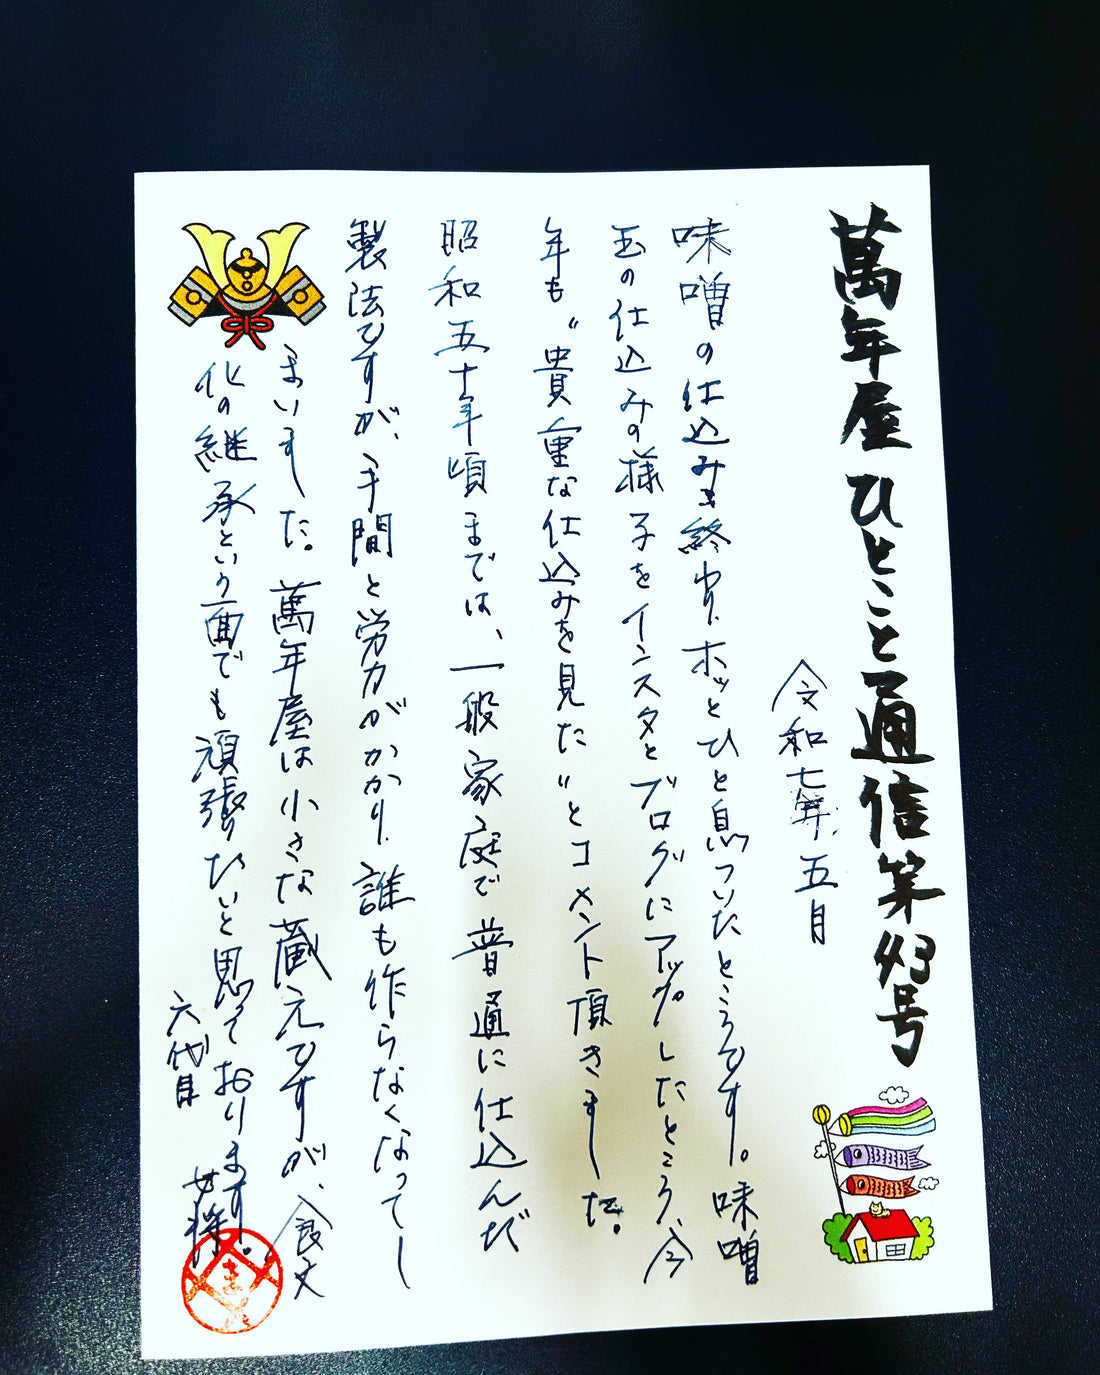 萬年屋ひとこと通信第43号
令和七年五月
味噌の仕込みも終わり、ホッとひと息ついたところです。味噌
玉の仕込みの様子をインスタとブログにアップしたところ、今
年も〝貴重な仕込みを見た〟とコメント頂きました。
昭和五十年頃までは、一般家庭で普通に仕込んだ
製法ですが、手間と労力がかかり、誰も作らなくなってし
まいました。萬年屋は小さな蔵元ですが、食文
化の継承という面でも頑張りたいと思っております。
六代目